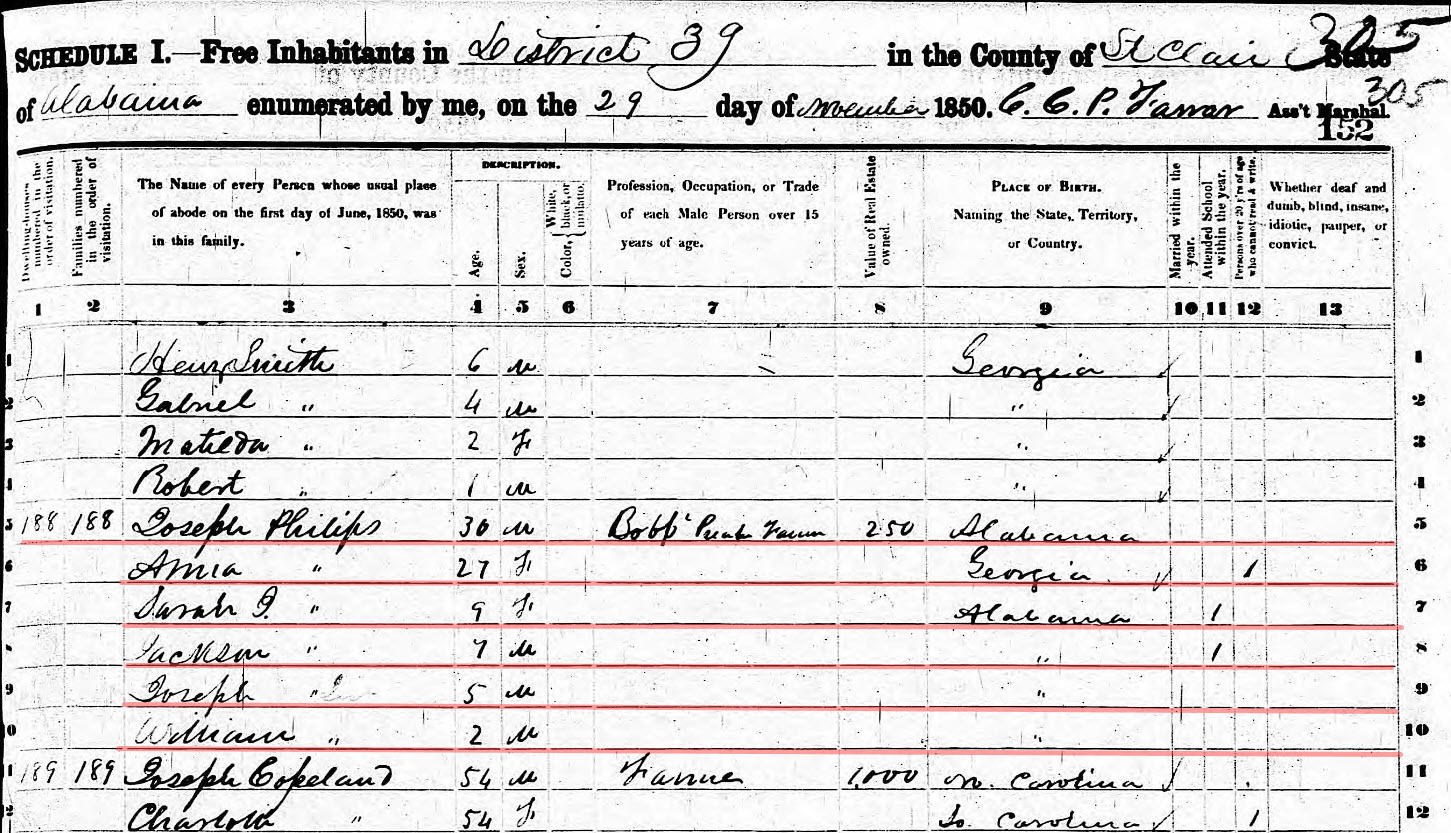 305
SCHEDULE I.—Free Inhabitants in District 39 in the County of St Clair State
of Alabama enumerated by me, on the 29 day of November 1850. C. C. P. Farrar Ass't Marshal.
305
152
Dwelling-houses numbered in the order of visitation.
Families numbered in the order of visitation.
The Name of every Person whose usual place
of abode on the first day of June, 1850, was
in this family.
DESCRIPTION.
Age.
Sex.
Color, { White, black, or mulatto.
Profession, Occupation, or Trade
of each Male Person over 15
years of age.
Value of Real Estate owned.
PLACE OF BIRTH.
Naming the State, Territory,
or Country.
Married within the year.
Attended School within the year.
Persons over 20 y'rs of age who cannot read & write.
Whether deaf and
dumb, blind, insane,
idiotic, pauper, or
convict.
1 2 3 4 5 6 7 8 9 10 11 12 13
1 Henry Smith 6 M Georgia 1
2 Gabriel " 4 M " 2
3 Matilda " 2 F " 3
4 Robert " 1 M " 4
5 188 188 Joseph Philips 30 M 250 Alabama 5
6 Anna " 27 F Georgia 1 6
7 Sarah J. " 9 F Alabama 1 7
8 Jackson " 7 M " 1 8
9 Joseph " 5 M " 9
10 William " 2 M " 10
11 189 189 Joseph Copeland 54 M Farmer 1,000 No. Carolina 11
12 Charlott " 54 F So. Carolina 1 12